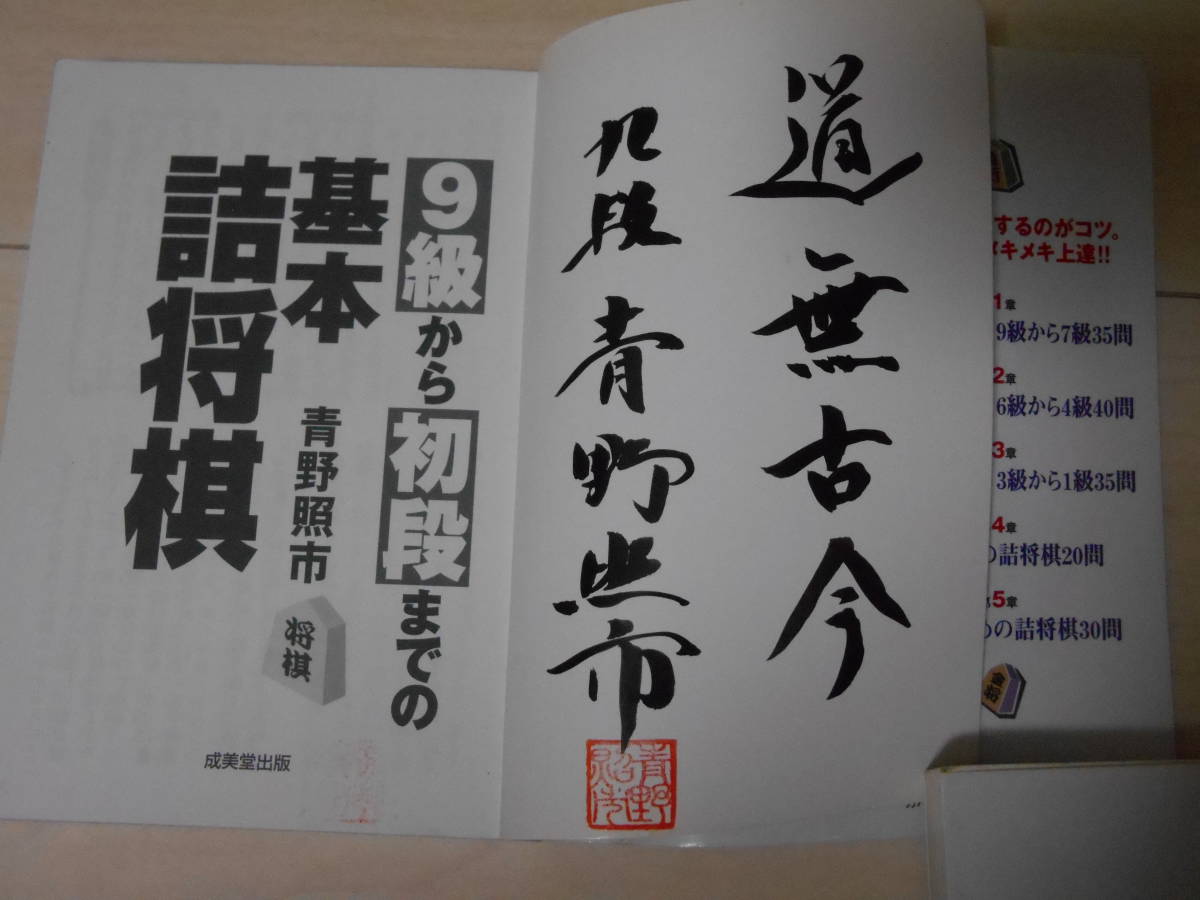 9級から初段までの
基本
詰将棋
青野照市
将棋
成美堂出版
道無古今
九段 青野照市
するのがコツ。
メキメキ上達!!
1章
9級から7級35問
2章
6級から4級40問
3章
3級から1級35問
4章
の詰将棋20問
5章
めの詰将棋30問
金将